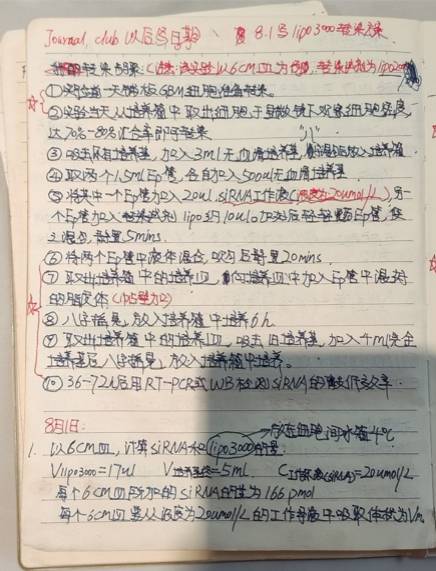 Journal club 以后每日期、8.1号 lipo3000转染步骤
转染步骤：(注：该实验以6cm皿为例，转染试剂为lipo2000
①实验前一天铺板GBM细胞准备转染。
②实验当天从培养箱中取出细胞，于显微镜下观察细胞密度，
达70%-80%汇合率即可转染
③吸去原有培养基，加入3ml无血清培养基，放入培养箱
④取两个1.5ml Ep管，各自加入500ul无血清培养基
⑤将其中一个Ep管加入20ul siRNA工作液(浓度为20umol/L)，另
一个Ep管加入转染试剂 lipo 10ul。加好后轻轻颠Ep管，使
之混匀，静置5mins.
⑥将两个Ep管中液体混合，吹匀后静置20mins.
⑦取出培养箱中的培养皿，向培养皿中加入Ep管中混好
的脂质体
⑧八字摇晃，放入培养箱中培养6h.
⑨取出培养箱中的培养皿，吸去旧培养基，加入4ml完全
培养基后八字摇晃，放入培养箱中培养。
⑩36-72h后用RT-PCR或WB检测siRNA的敲低效率.
8月1日：
存在细胞间冰箱4℃
1. 以6cm皿，计算siRNA和lipo3000用量.
Vlipo3000=17ul V培养基总=5mL C工作浓度(siRNA)=20umol/L
每个6cm皿所加的siRNA的量为166pmol
每个6cm皿要从浓度为20umol/L的工作导液中吸取体积为V1.